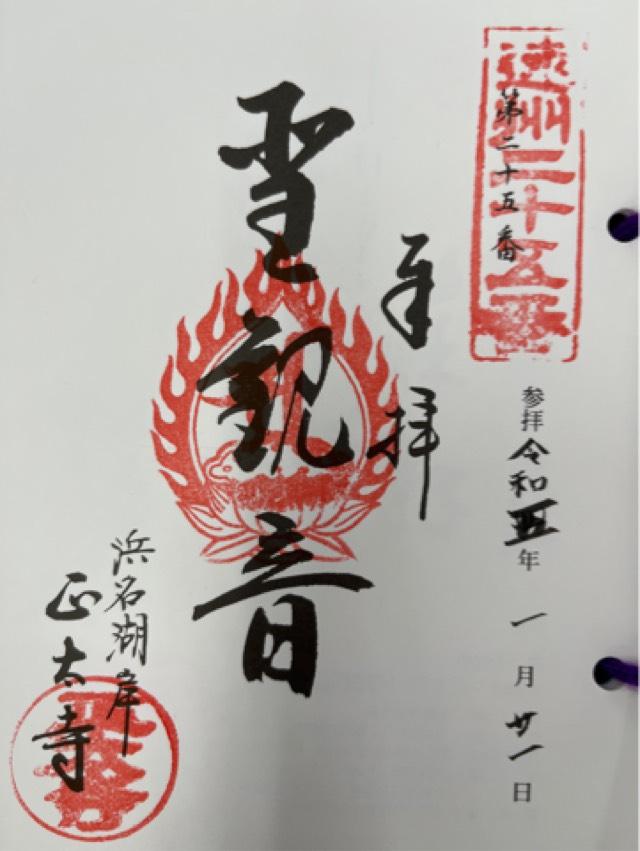 遠州二十五番
第二十五番
参拝令和五年一月廿一日
奉拝
聖観音
浜名湖岸
正太寺